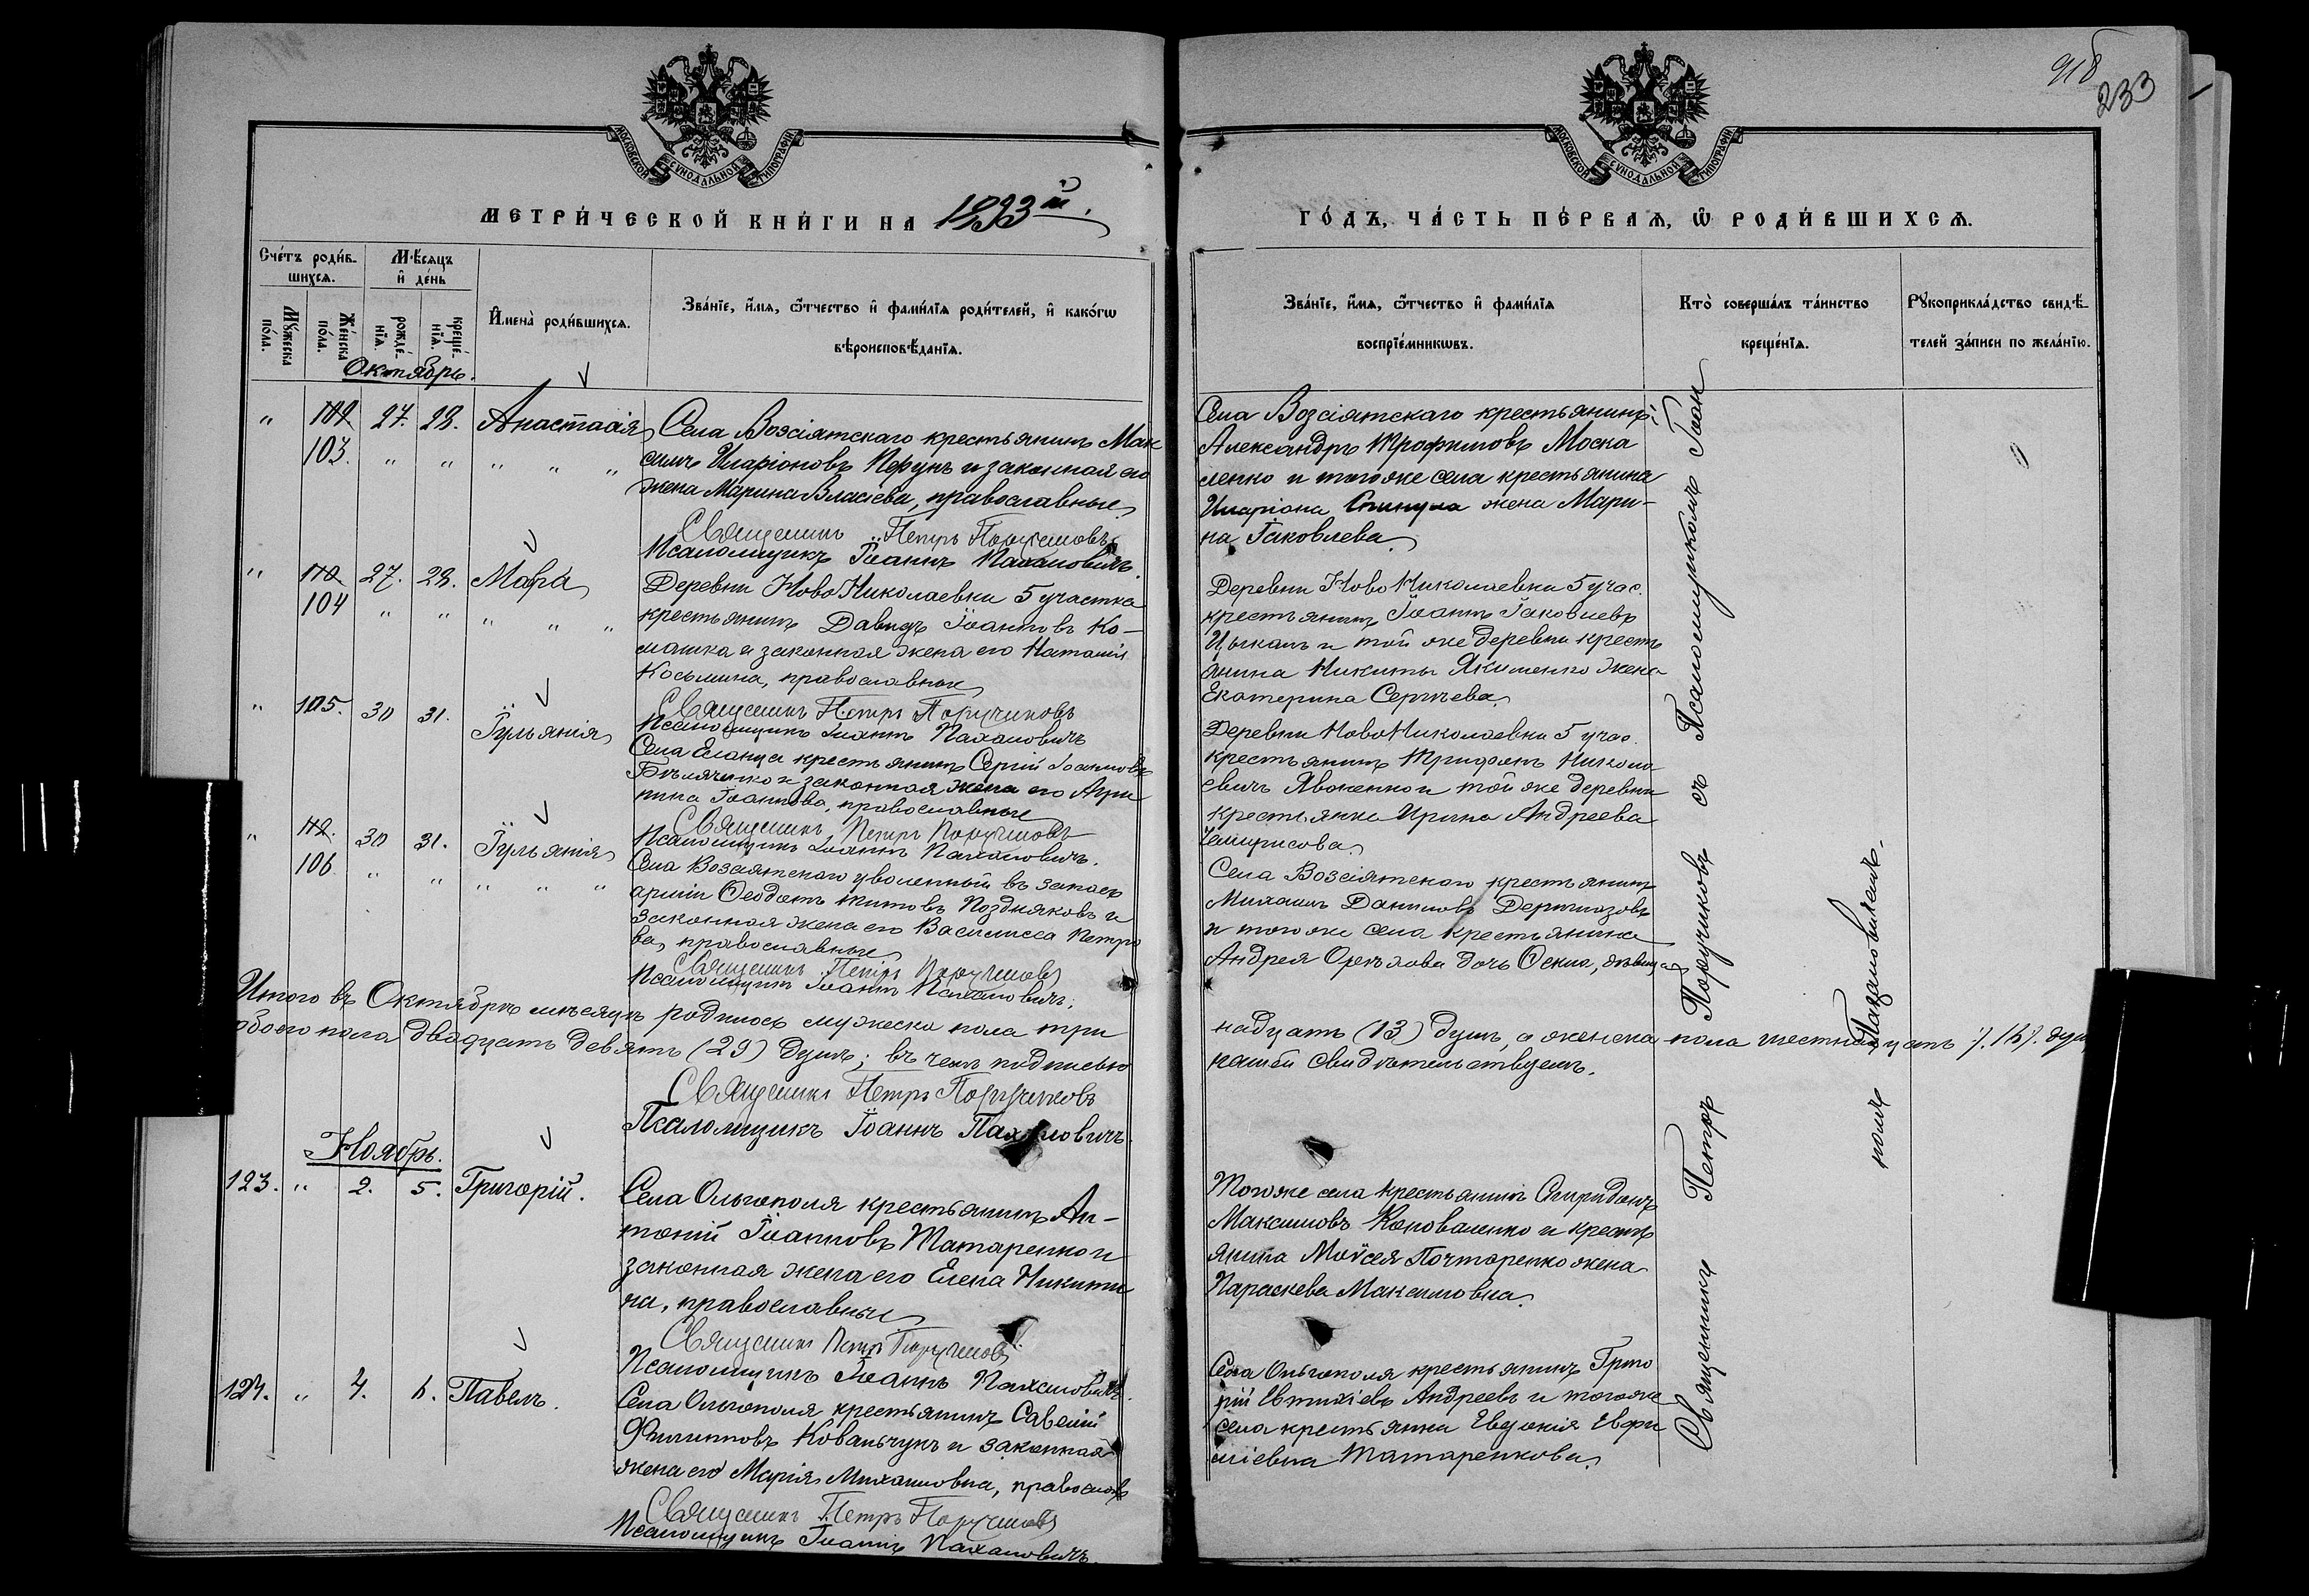 233
МОСКОВСКОЙ СѴНОДАЛЬНОЙ ТИПОГРАФІИ
МОСКОВСКОЙ СѴНОДАЛЬНОЙ ТИПОГРАФІИ
МЕТРИ́ЧЕСКОЙ КНИ́ГИ НА 1893й.
ГО́ДЪ, ЧА́СТЬ ПЕ́РВАЯ, Ѡ҃ РОДИ́ВШИХСѦ.
Сче́тъ роди́вшихсѧ.
Мꙋ́жеска по́ла.
Же́нска по́ла.
Мѣ́сѧцъ и҆ де́нь
рожде́нїѧ.
креще́нїѧ.
И҆мена̀ роди́вшихсѧ.
Зва́нїе, и҆́мѧ, ѻ҆́тчество и҆ фами́лїѧ роди́телей, и҆ како́гѡ
вѣроисповѣ́данїѧ.
Зва́нїе, и҆́мѧ, ѻ҆́тчество и҆ фами́лїѧ
воспрїе́мникѡвъ.
Кто̀ соверша́лъ та́инство
креще́нїѧ.
Рꙋкоприкла́дство свидѣ́-
телей за́писи по жела́нїю.
Октябрь.
" 103. 27. 28. Анастасія
Села Возсіятскаго крестьянинъ Мак
симъ Иларіоновъ Перунъ и законная его
жена Марина Власіева, православные
Священникъ Петръ Поручиковъ
Псаломщикъ Іоаннъ Пахаловичъ.
Села Возсіятскаго крестьянинъ
Александръ Трофимовъ Моска
ленко и тогоже села крестьянина
Иларіона жена Мари-
на Іаковлева
" 104 27. 28. Мавра
Деревни НовоНиколаевки 5 участка
крестьянинъ Давидъ Іоанновъ Ко-
машка и законная жена его Наталія
Косьмина, православные
Священникъ Петръ Поручиковъ
Псаломщикъ Іоаннъ Пахаловичъ
Деревни НовоНиколаевки 5 учас.
крестьянинъ Іоаннъ Іаковлевъ
Цыкалъ и той же деревни кресть
янина Никиты Якименко жена
Екатерина Сергѣева
" 105. 30 31. Іуліанія
Села Еланца крестьянинъ Сергій Іоанновъ
Бѣляченко и законная жена его Агри
пина Іоаннова, православные
Священникъ Петръ Поручиковъ
Псаломщикъ Іоаннъ Пахаловичъ.
Деревни НовоНиколаевки 5 учас.
крестьянинъ Трифонъ Никола
евичъ Явоненко и той же деревни
крестьянка Ирина Андреева
" 106 30 31. Іуліанія
Села Возсіятскаго уволенный въ запасъ
арміи Ѳеодотъ Титовъ Поздняковъ и
законная жена его Василисса Петро
ва, православные
Священникъ Петръ Поручиковъ
Псаломщикъ Іоаннъ Пахаловичъ.
Села Возсіятскаго крестьянинъ
Михаилъ Даниловъ Держиазовъ
и тогоже села крестьянина
Андрея Орехова дочь Ѳекла, дѣвица
Итого въ Октябрѣ мѣсяцѣ родилось мужеска пола три
надцать (13) душъ, а женска пола шестнадцать /.16/. душ
обоего пола двадцать девять (29) душъ; въ чемъ подписью
нашей свидѣтельствуемъ.
Священникъ Петръ Поручиковъ
Псаломщикъ Іоаннъ Пахаловичъ.
Ноябрь.
123. " 2. 5. Григорій.
Села Ольгополя крестьянинъ Ан-
тоній Іоанновъ Татаренко и
законная жена его Елена Никити
на, православные
Священникъ Петръ Поручиковъ
Псаломщикъ Іоаннъ Пахаловичъ.
Тогоже села крестьянинъ Спиридонъ
Максимовъ Коноваленко и кресть
янина Моѵсея Почтаренко жена
Параскева Максимовна
124. " 4. 6. Павелъ.
Села Ольгополя крестьянинъ Савелій
Филипповъ Ковальчукъ и законная
жена его Марія Михаиловна, православ
Священникъ Петръ Поручиковъ
Псаломщикъ Іоаннъ Пахаловичъ.
Села Ольгополя крестьянинъ Григо
рій Евтихіевъ Андреевъ и тогоже
села крестьянка Евдокія Евфи
міевна Татаренкова
Священникъ Петръ Поручиковъ съ Псаломщикомъ Іоан
номъ Пахаловичемъ.